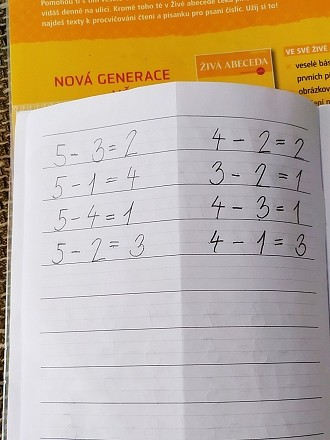 Pomohou ti
vidáš denně na ulici. Kromě toho tě v Živé abecedě čeká
najdeš texty k procvičování čtení a písanku pro psaní číslic. Užij si to!
NOVÁ GENERACE
ŽIVÁ ABECEDA
VE SVÉ ŽIV
veselé bás
prvních p
obrázkov
5 - 3 = 2
5 - 1 = 4
5 - 4 = 1
5 - 2 = 3
4 - 2 = 2
3 - 2 = 1
4 - 3 = 1
4 - 1 = 3